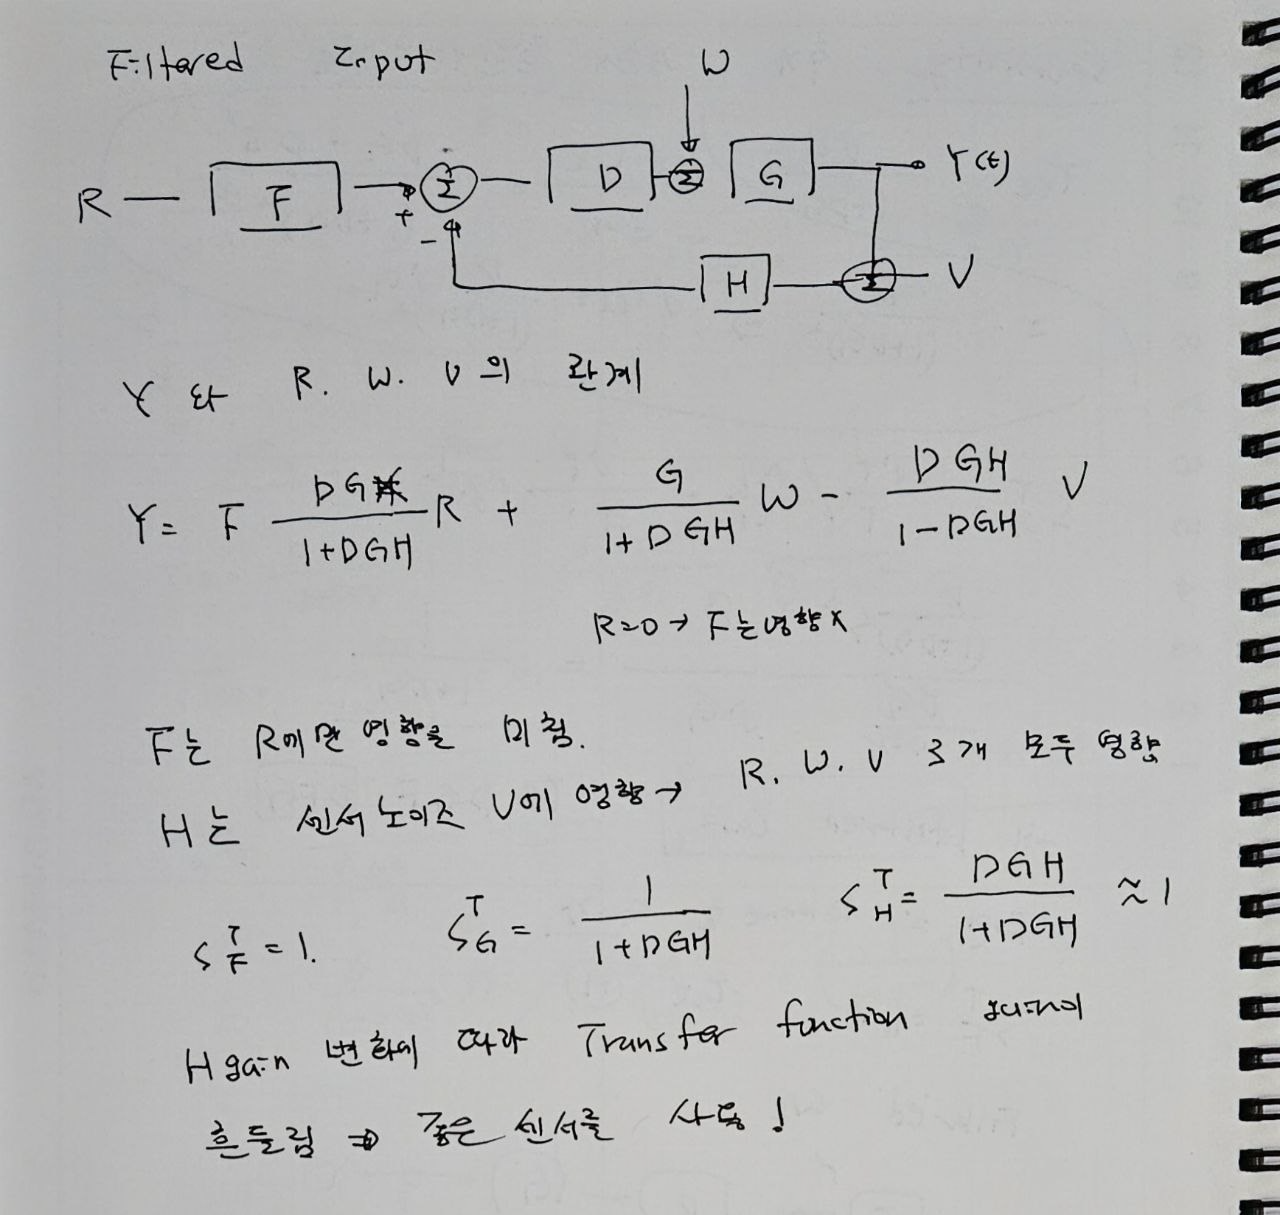 Filtered Input
W
R F + Σ D Σ G Y(t)
- H Σ V
Y 와 R. W. V의 관계
Y = F DG/(1+DGH) R + G/(1+DGH) W - DGH/(1-DGH) V
R=0 → F는 영향 x
F는 R에만 영향을 미침.
H는 센서 노이즈 V에 영향 → R. W. V 3개 모두 영향
S^T_F = 1. S^T_G = 1/(1+DGH) S^T_H = DGH/(1+DGH) ≈ 1
H gain 변화에 따라 Transfer function gain이
흔들림 ⇒ 좋은 센서를 사용!